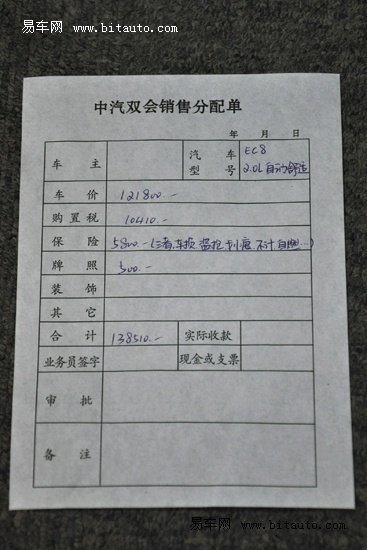 易车网
www.bitauto.com
中汽双会销售分配单
年 月 日
车 主 汽 车 型 号 EC8
2.0L自动舒适
车 价 121800.-
购 置 税 10410.-
保 险 5800.-(三者,车损 盗抢 划痕 不计 自燃...)
牌 照 500.-
装 饰
其 它
合 计 138510.- 实际收款
业务员签字 现金或支票
审 批
备 注
易车网
www.bitauto.com